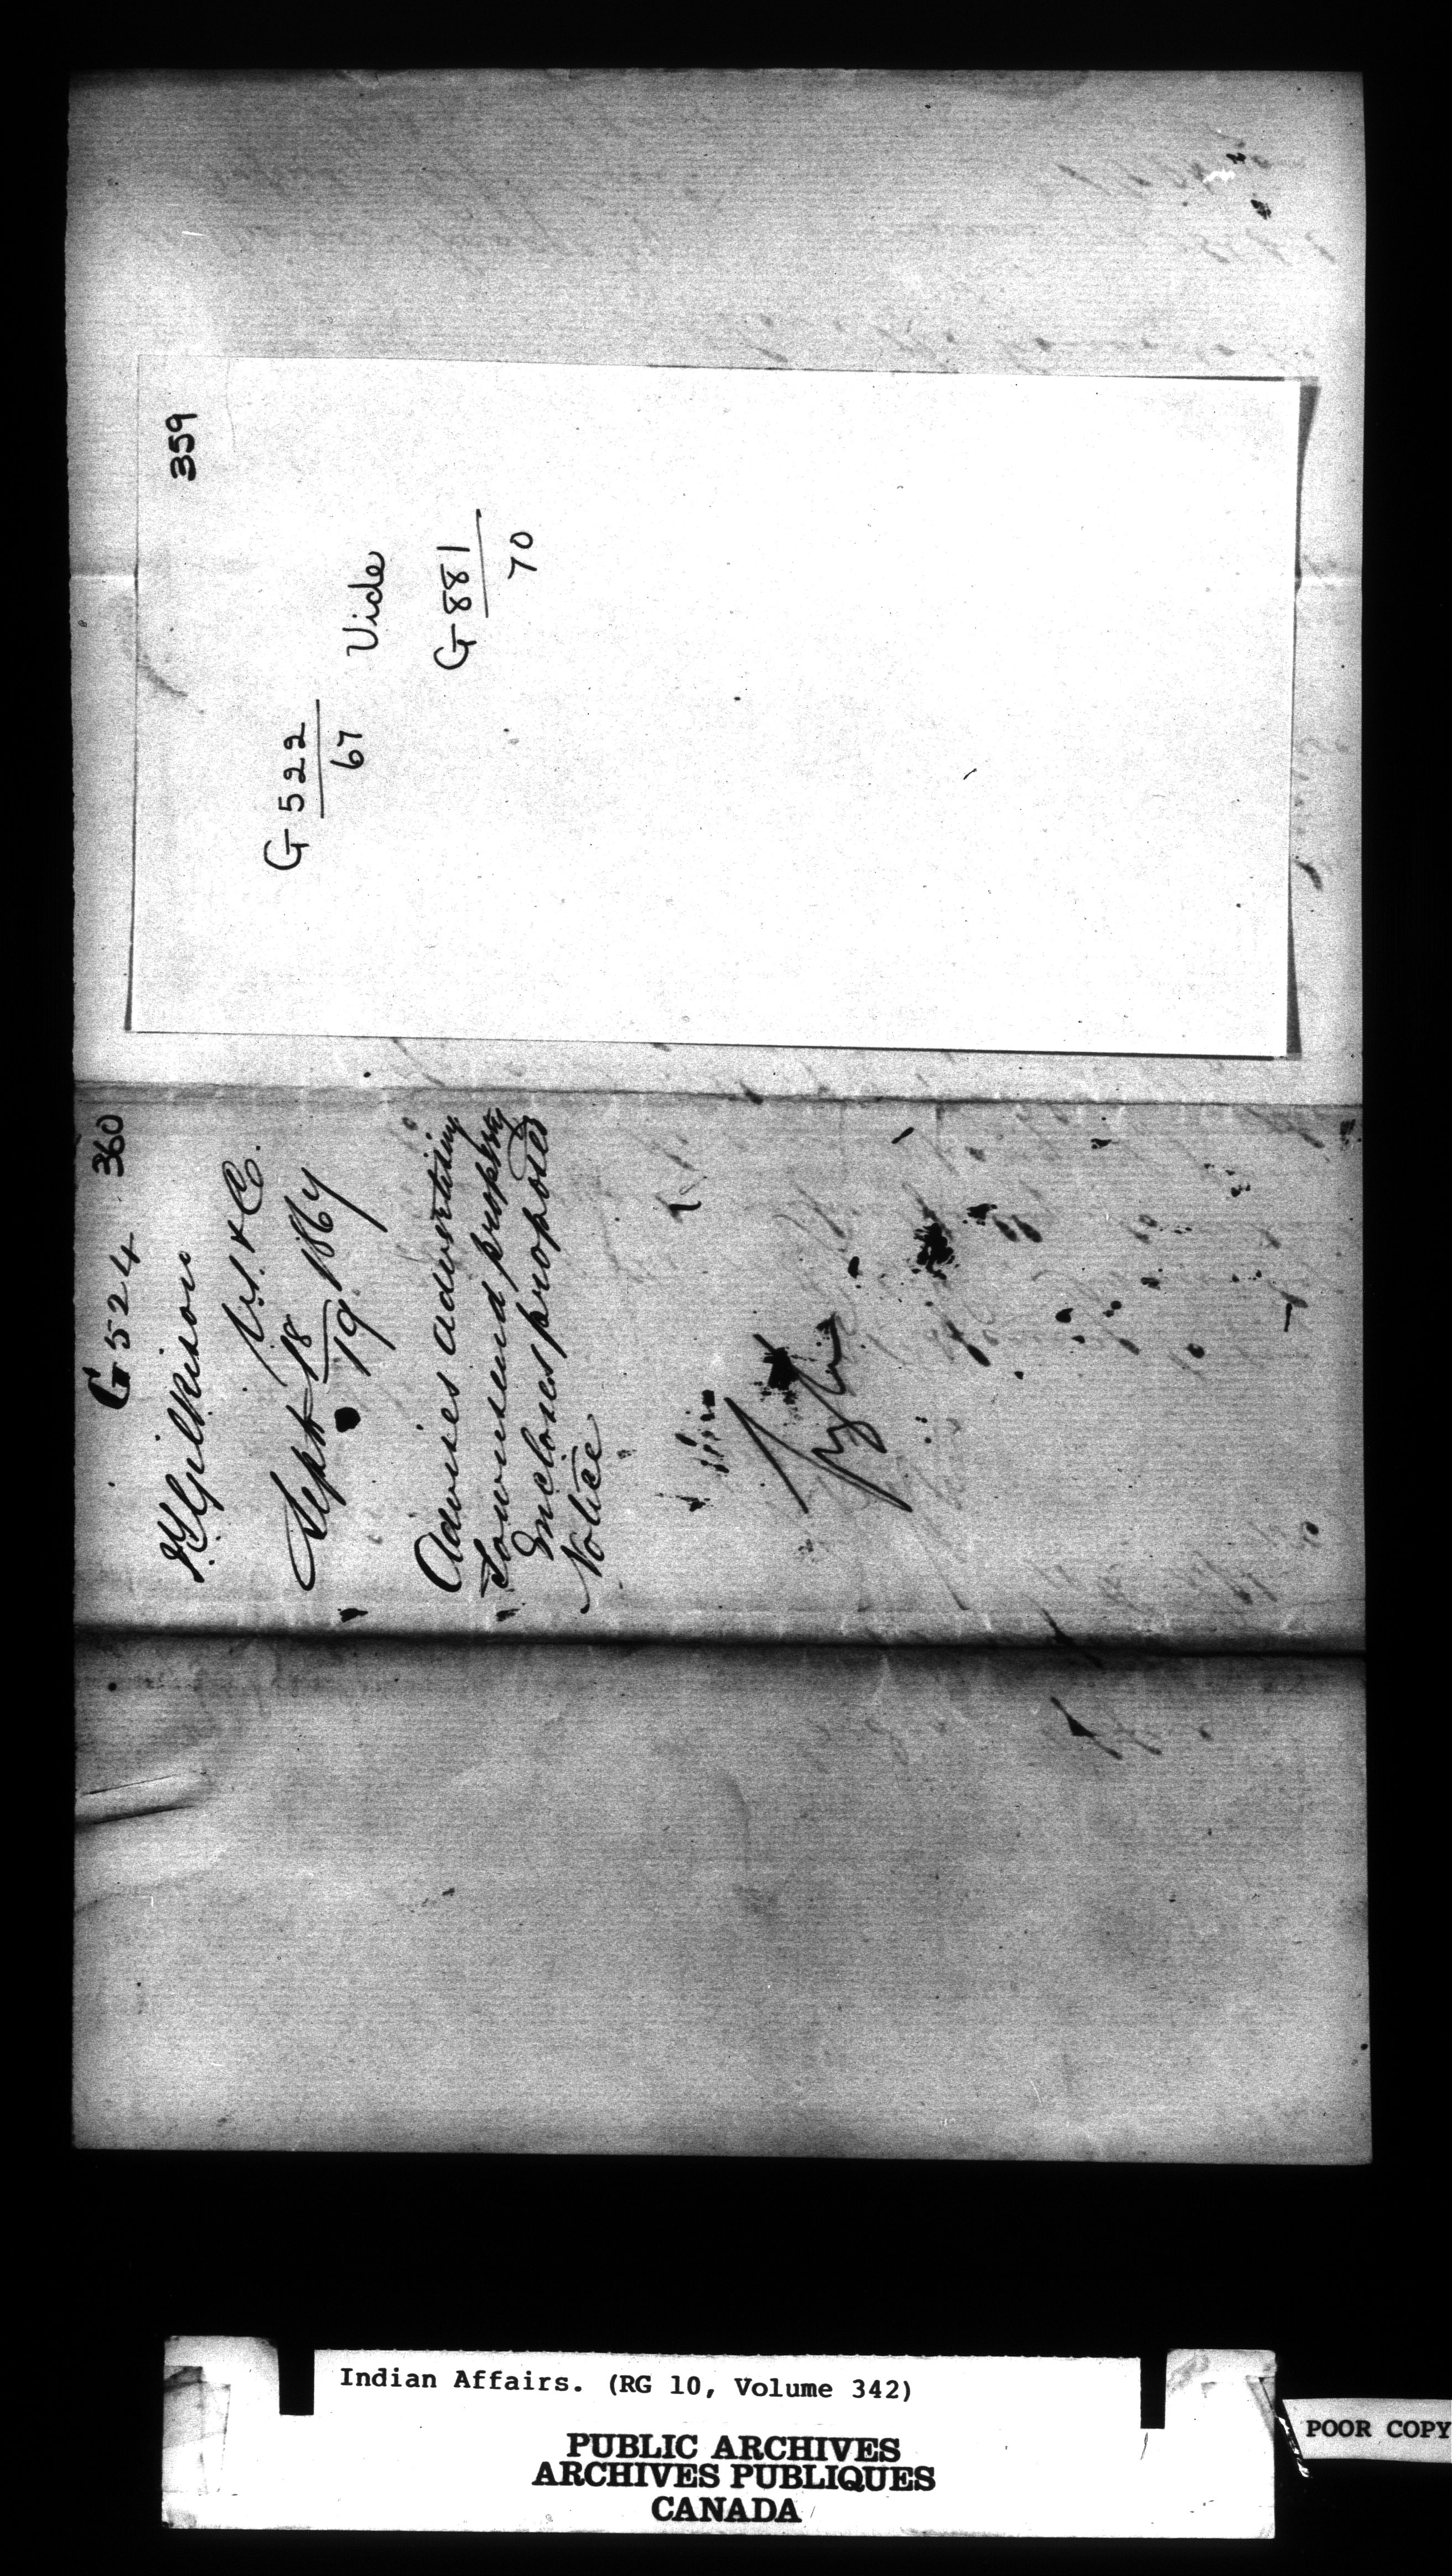 359
G 522
67
Vide
G 881
70
G 524 360
J. Gilkison
V. S. & Co.
Sept 18 1867
19
Advises advertising
Townsend property
Incloses proposed
Notice
Indian Affairs. (RG 10, Volume 342)
PUBLIC ARCHIVES
ARCHIVES PUBLIQUES
CANADA
POOR COPY